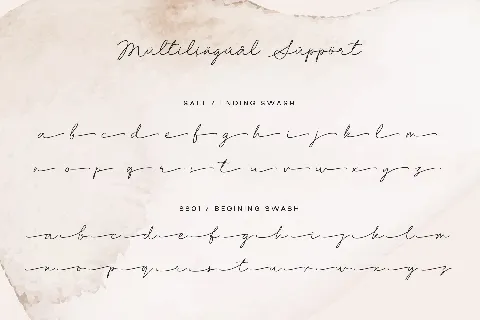 Multiliäguäl Süppört
SALT / ENDING SWASH
a b c d e f g h i j k l m
n o p q r s t u v w x y z
SS01 / BEGINING SWASH
a b c d e f g h i j k l m
n o p q r s t u v w x y z